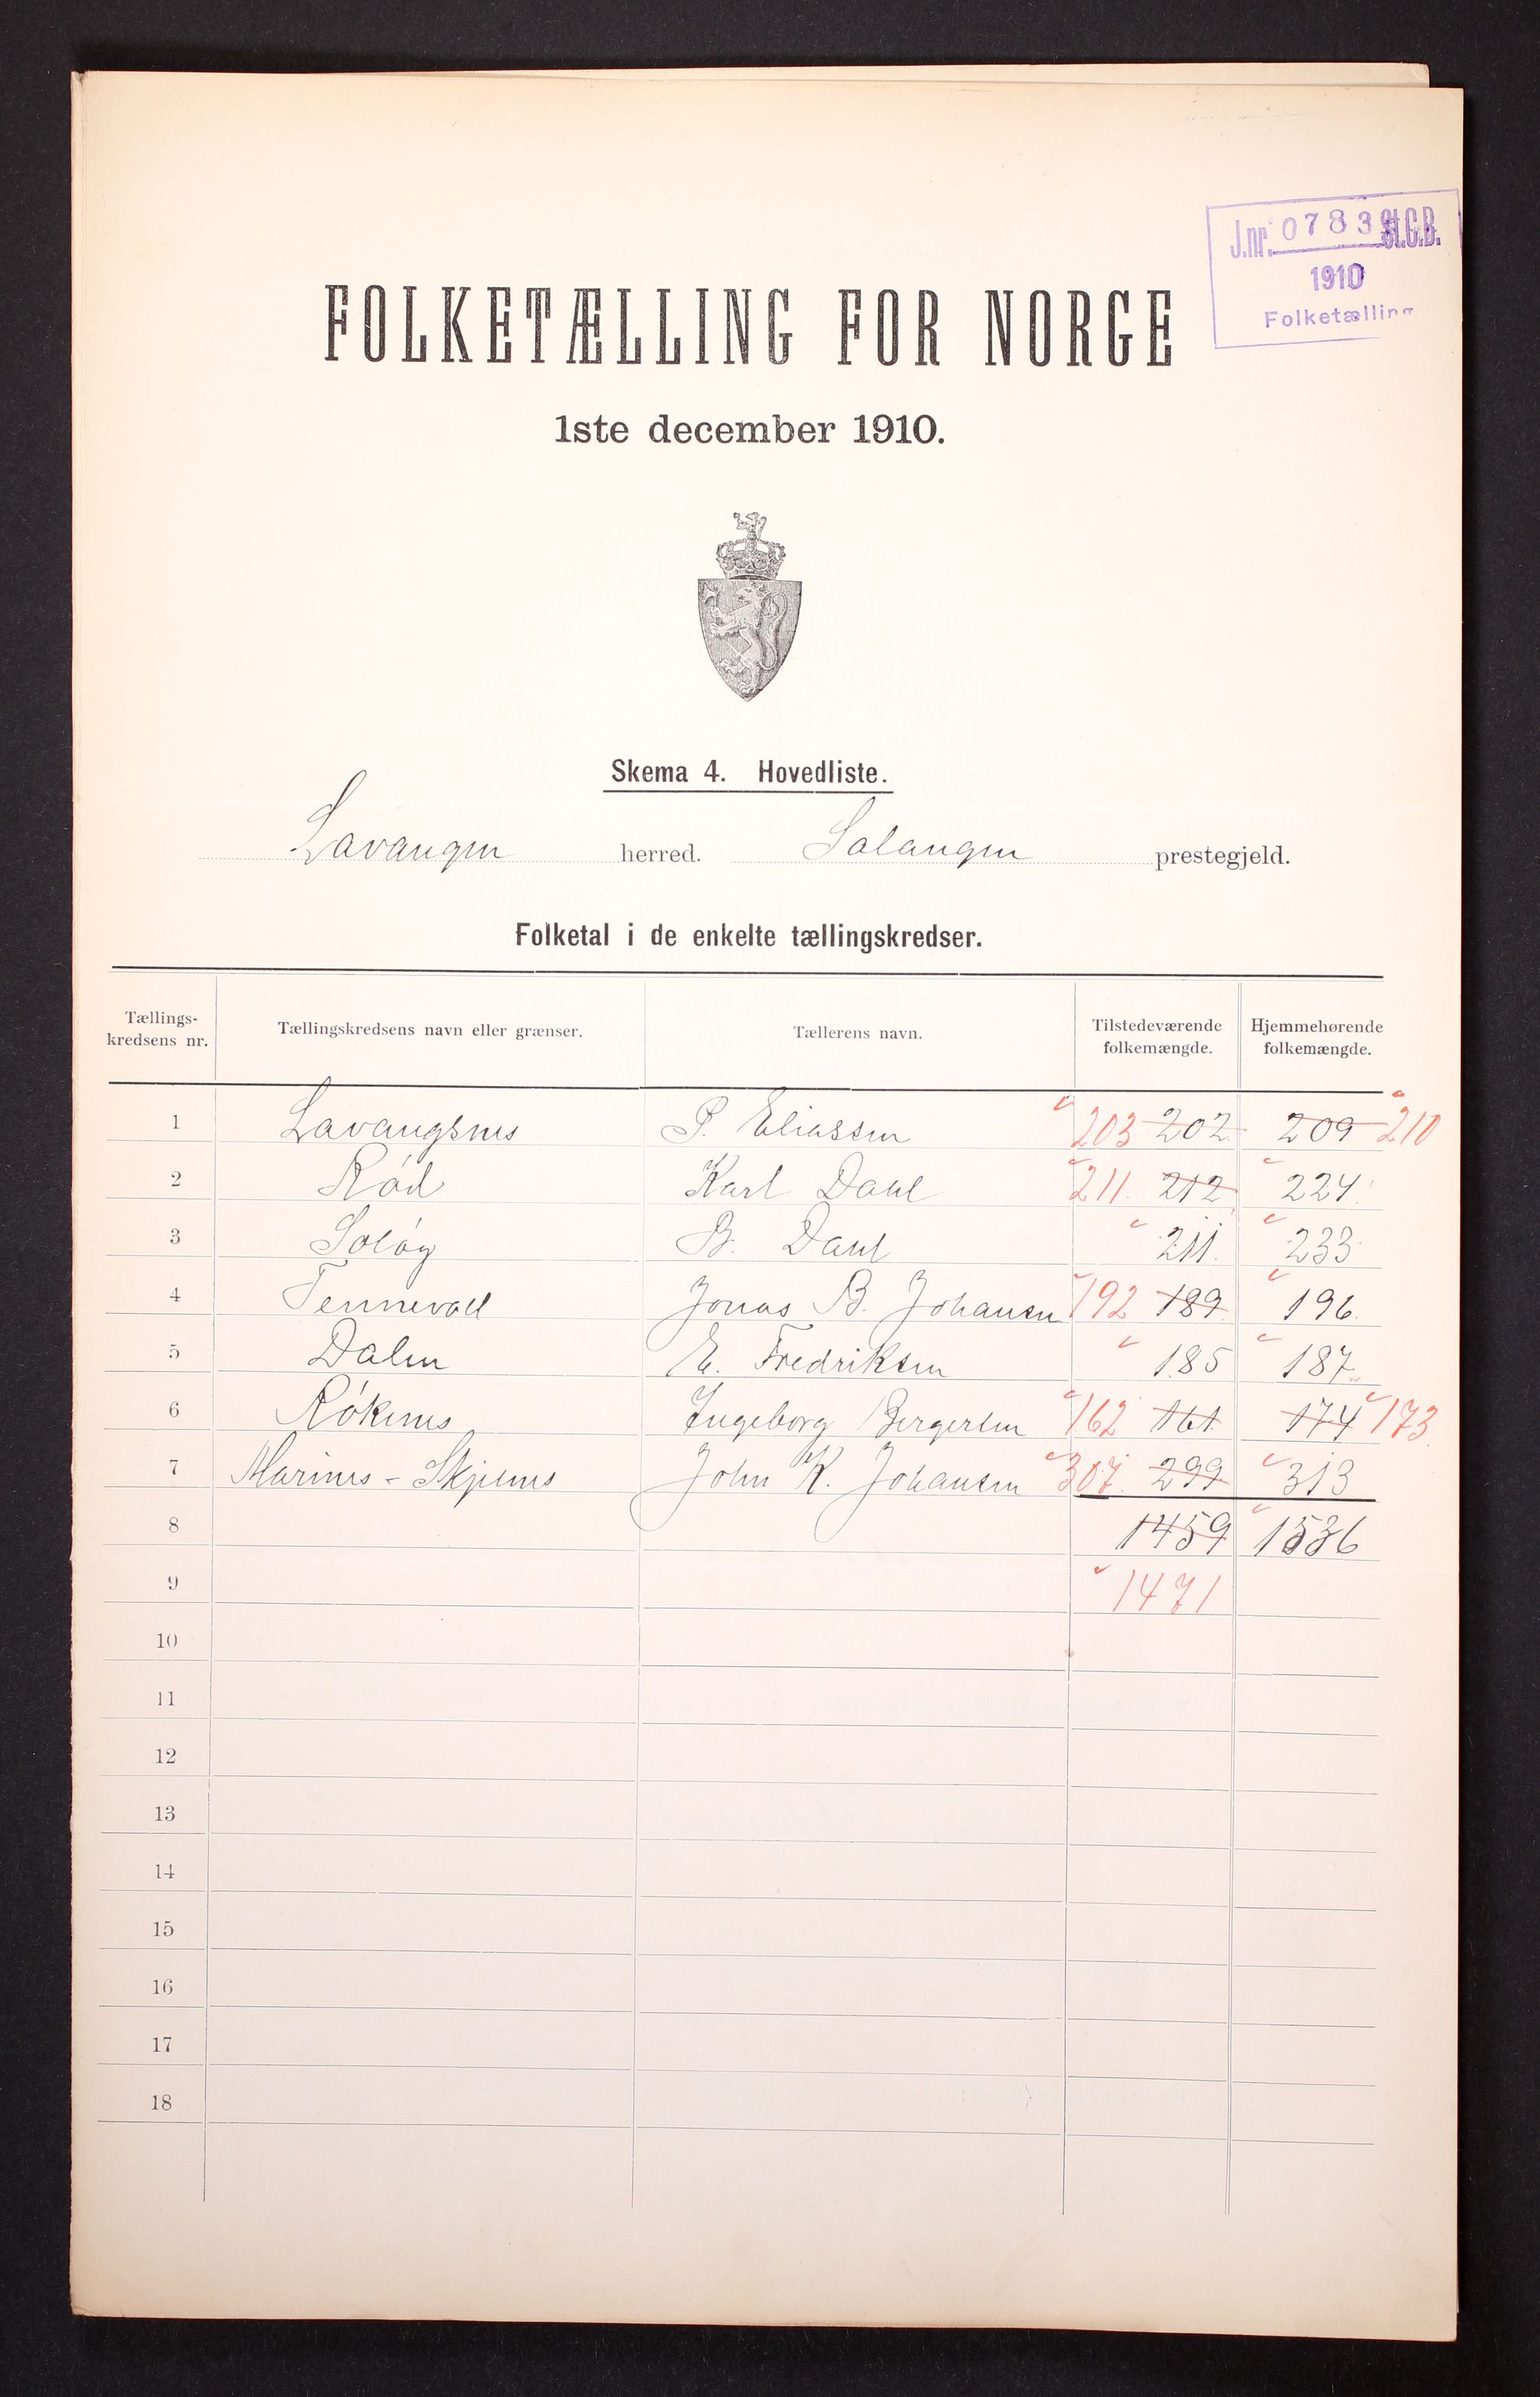 J.nr. 0783 St.C.B.
1910
Folketælling
FOLKETÆLLING FOR NORGE
1ste december 1910.
Skema 4. Hovedliste.
Lavangen herred. Salangen prestegjeld.
Folketal i de enkelte tællingskredser.
Tællings-kredsens nr. Tællingskredsens navn eller grænser. Tællerens navn. Tilstedeværende folkemængde. Hjemmehørende folkemængde.
1 Lavangsnes P. Eliassen 203 202 209 210
2 Rød Karl Dahl 211 212 224
3 Soløy B. Dahl 211 233
4 Tennevoll Jonas B. Johansen 192 189 196
5 Dalen E. Fredriksen 185 187
6 Røkenes Ingeborg Bergersen 162 161 174 173
7 Marines - Skjelnes John K. Johansen 307 299 313
8 1459 1536
9 1471
10
11
12
13
14
15
16
17
18